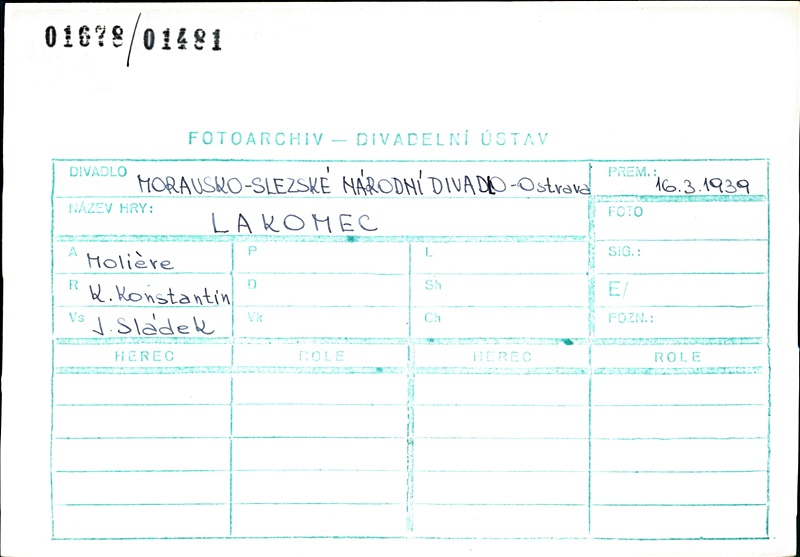 01678/01481
FOTOARCHIV – DIVADELNÍ ÚSTAV
DIVADLO MORAVSKO-SLEZSKÉ NÁRODNÍ DIVADLO-Ostrava PREM.: 16.3.1939
NÁZEV HRY: LAKOMEC FOTO
A Molière P L SIG.:
R K. Konstantin D Sh E/
Vs J. Sládek Vk Ch POZN.:
HEREC ROLE HEREC ROLE